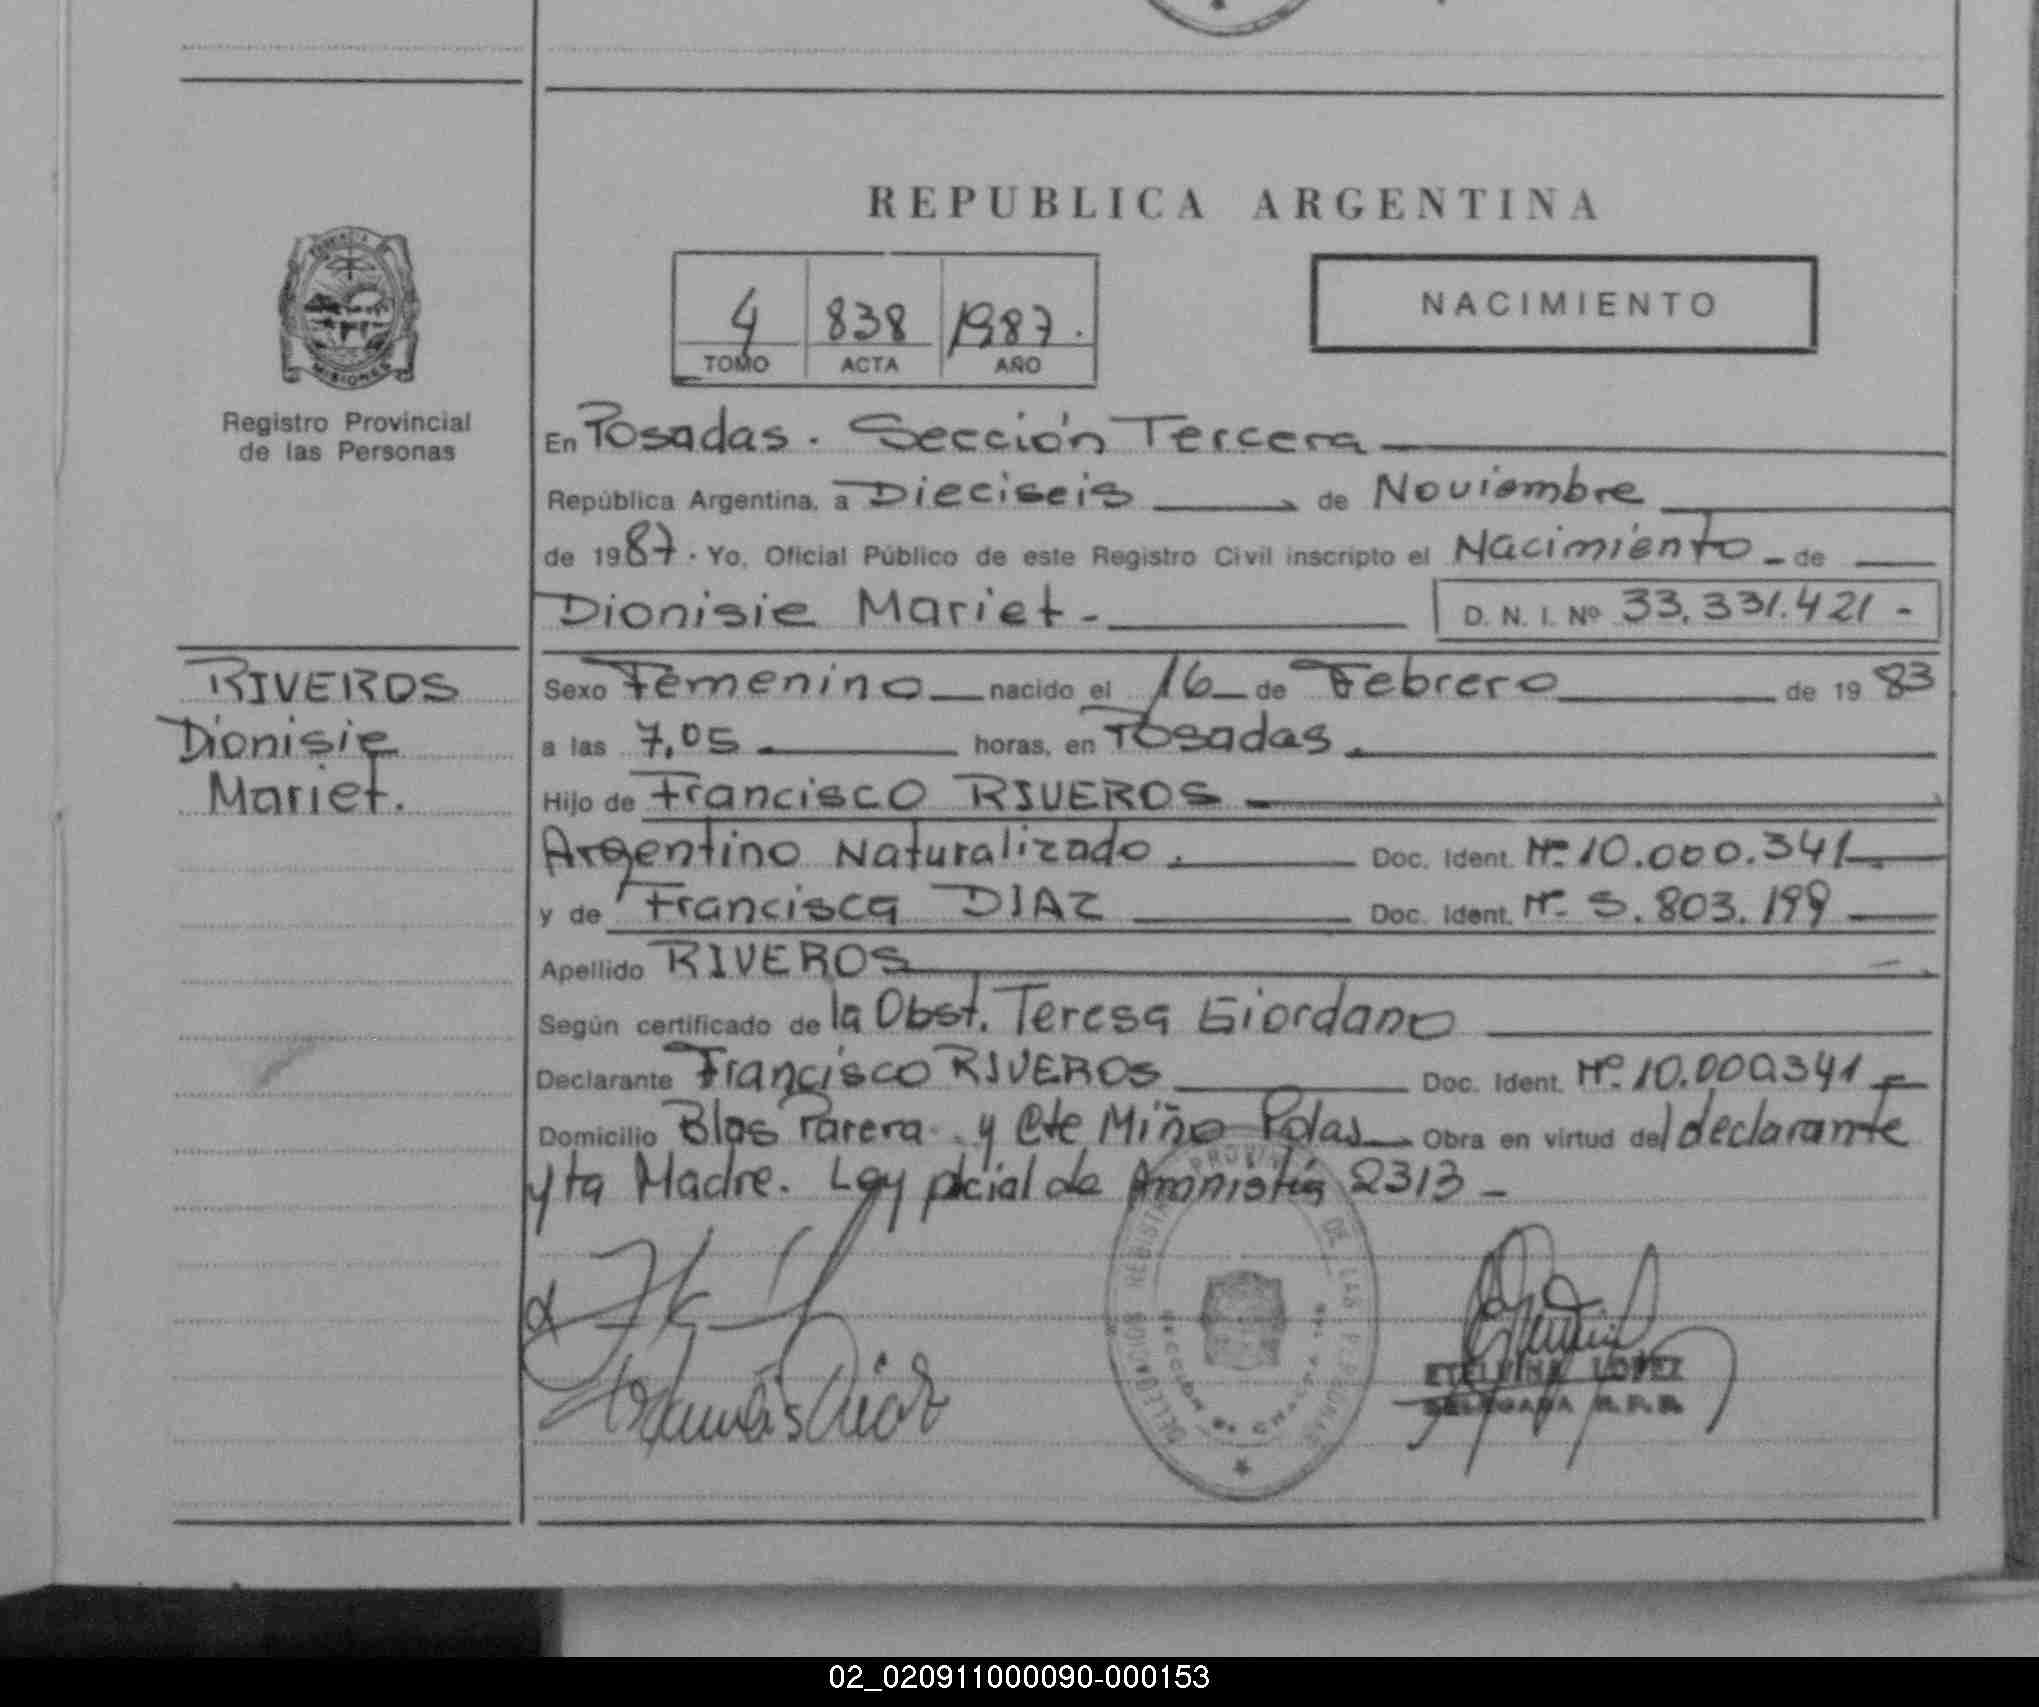 REPUBLICA ARGENTINA
4 838 1987.
TOMO ACTA AÑO
NACIMIENTO
MISIONES
Registro Provincial
de las Personas
En Posadas. Sección Tercera
República Argentina, a Dieciseis de Noviembre
de 1987. Yo, Oficial Público de este Registro Civil inscripto el Nacimiento - de
Dionisie Mariet - D. N. I. Nº 33.331.421 -
RIVEROS
Dionisie
Mariet.
Sexo Femenino nacido el 16 de Febrero de 1983
a las 7,05 horas, en Posadas.
Hijo de Francisco RIVEROS
Argentino Naturalizado. Doc. Ident. Nº 10.000.341
y de Francisca DIAZ Doc. Ident. Nº 5.803.199
Apellido RIVEROS
Según certificado de la Obst. Teresa Giordano
Declarante Francisco RIVEROS Doc. Ident. Nº 10.000.341
Domicilio Blas Parera y Cte Miño Obra en virtud del declarante
y la Madre. Ley pcial de Amnistía 2313 -
DELEGACION REGISTRO PROVINCIAL DE LAS PERSONAS
ETELVINA LOPEZ
DELEGADA R.P.P.
02_020911000090-000153